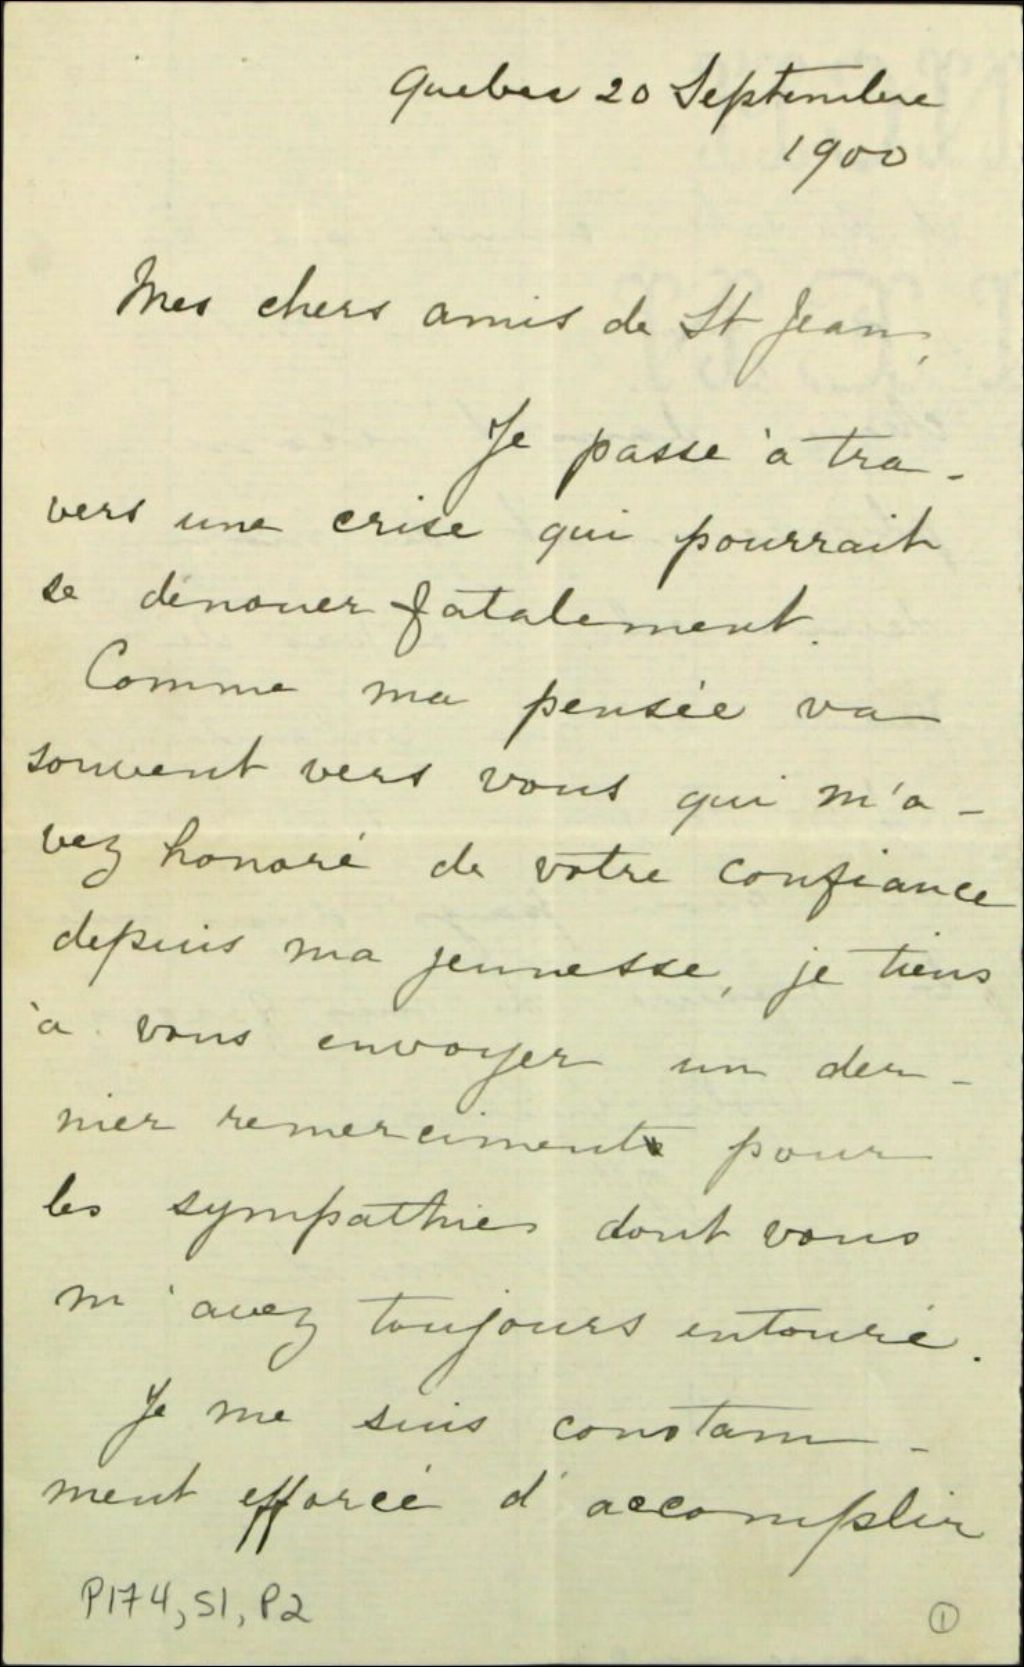 Quebec 20 Septembre
1900
Mes chers amis de St Jean,
Je passe à tra-
vers une crise qui pourrait
se dénouer fatalement.
Comme ma pensée va
souvent vers vous qui m'a-
vez honoré de votre confiance
depuis ma jeunesse, je tiens
à vous envoyer un der-
nier remerciment pour
les sympathies dont vous
m'avez toujours entouré.
Je me suis constam-
ment efforcé d'accomplir
P174, S1, P2
1